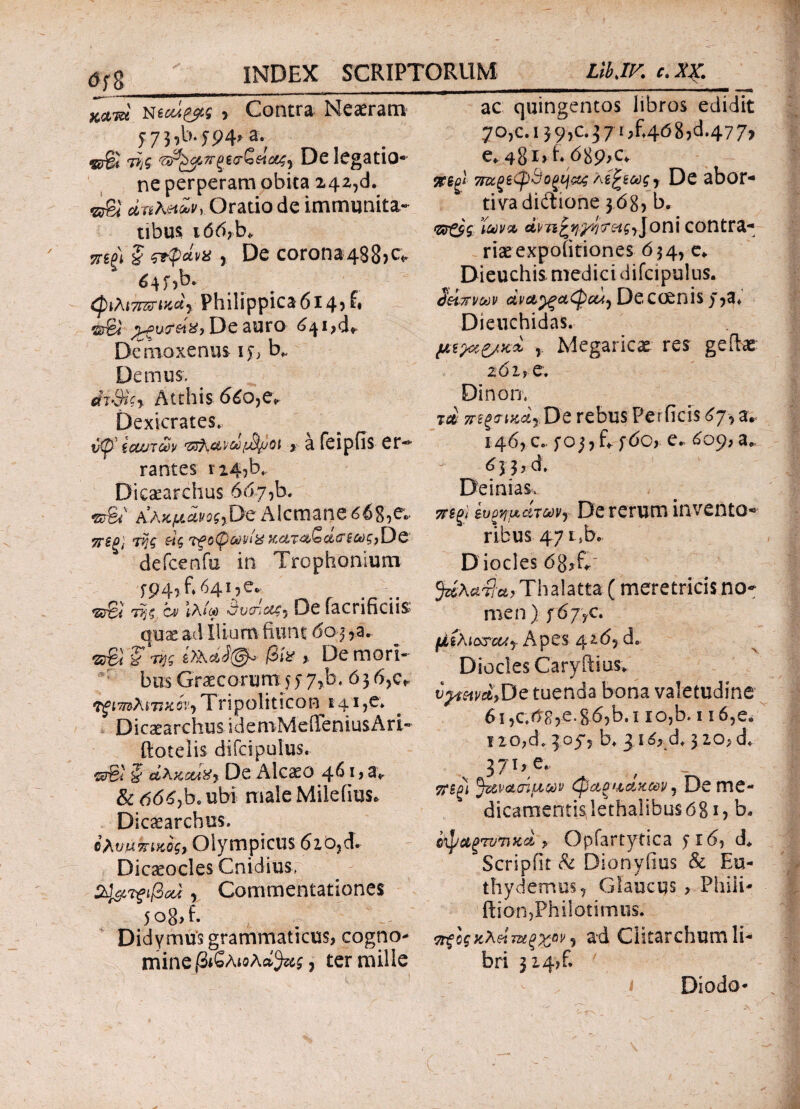 658 INDEX SCRIPTORUM Lib.IV. c.XX.
κατὰ Νεαίρας, Contra Neæram
573,b.594, a.
περὶ τῆς παραπρεσβείας, De legatio-
ne perperam obita 242,d.
περὶ ἀτελειῶν, Oratio de immunita-
tibus 166,b.
περὶ τοῦ στεφάνου, De corona 488,c.
645,b.
φιλιππικά, Philippica 614, f.
περὶ χρυσείου, De auro 641,d.
Demoxenus 15, b.
Demus.
ἀτθίς, Atthis 660,e.
Dexicrates.
ὑφ' ἑαυτῶν πλανώμενοι, à seipsis er-
rantes 124,b.
Dicæarchus 667,b.
περὶ Ἀλκμάνος, De Alcmane 668,e.
περὶ τῆς εἰς τροφωνίου καταβάσεως, De
descensu in Trophonium
594, f. 641, e.
περὶ τῆς ἐν ἰλίῳ θυσίας, De sacrificiis
quæ ad Ilium fiunt 603,a.
περὶ τοῦ τῆς ἑλλάδος βίου, De mori-
bus Græcorum 557,b. 636,c.
τριπολιτικόν, Tripoliticon 141,e.
Dicæarchus idem Messenius Ari-
stotelis discipulus.
περὶ τοῦ ἀλκαίου, De Alcæo 461, a.
& 666,b. ubi male Milesius.
Dicæarchus.
ὀλυμπικός, Olympicus 620,d.
Dicæocles Cnidius.
Διατριβαὶ, Commentationes
508, f.
Didymus grammaticus, cogno-
mine βιβλιολάθας, ter mille
ac quingentos libros edidit
70,c.139,c.371,f.468,d.477,
e. 481, f. 689,c.
περὶ παρεφθορυίας λέξεως, De abor-
tiva dictione 368, b.
πρὸς ἴωνα ἀντεξηγήσεις, Joni contra-
riæ expositiones 634, e.
Dieuchis medici discipulus.
δείπνων ἀναγραφαί, De cœnis 5,a.
Dieuchidas.
μεγαρικὰ, Megaricæ res gestæ
262, e.
Dinon.
τὰ περσικά, De rebus Persicis 67, a.
146, c. 503, f. 560, e. 609, a.
633, d.
Deinias.
περὶ εὑρημάτων, De rerum invento-
ribus 471,b.
Diocles 68,f.
θάλαττα, Thalatta ( meretricis no-
men ) 567,c.
μέλισσαι, Apes 426, d.
Diocles Carystius.
ὑγιεινά, De tuenda bona valetudine
61,c.68,e.86,b.110,b.116,e.
120,d. 305, b. 316, d. 320, d.
371, e.
περὶ θανασίμων φαρμάκων, De me-
dicamentis lethalibus 681, b.
ὀψαρτυτικά, Opsartytica 516, d.
Scripsit & Dionysius & Eu-
thydemus, Glaucus, Phili-
stion, Philotimus.
πρὸς κλείταρχον, ad Clitarchum li-
bri 324,f.
Diodo-